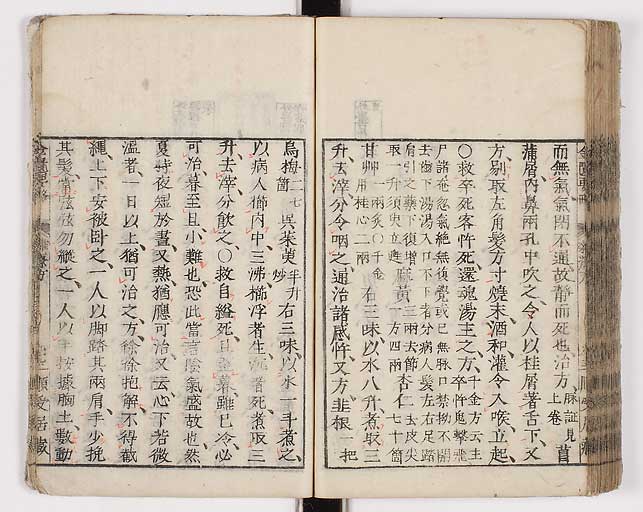 而無氣氣閉不通故靜而死也治方脉証見上卷菖
蒲屑内鼻兩孔中吹之令人以桂屑著舌下又
方剔取左角髪方寸燒末酒和灌令入喉立起
○救卒死客忤死還魂湯主之方千金方云主卒忤鬼擊飛
尸諸奄忽氣絶無復覺或已無脉口禁拗不開
去齒下湯湯入口不下者分病人髪左右足踏
肩引之藥下復增取一升須臾立甦麻黄三兩去節一方四兩杏仁去皮尖七十箇
甘艸一兩炙○千金用桂心二兩右三味以水八升煮取三
升去滓分令咽之通治諸感忤又方韭根一把
烏梅二七箇呉茱萸半升炒右三味以水一斗煮之
以病人櫛内中三沸櫛浮者生沉者死煮取三
升去滓分飲之○救自縊死且至暮雖已冷必
可治暮至旦小難也恐此當言陰氣盛故也然
夏時夜短於晝又熱猶應可治又云心下若微
溫者一日以上猶可治之方徐徐抱解不得截
繩上下安被臥之一人以脚踏其兩肩手少挽
其髪常弦弦勿縱之一人以手按據胸上數動